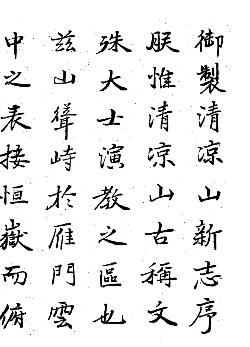 御製清凉山新志序
朕惟清凉山古稱文
殊大士演教之區也
兹山聳峙於雁門雲
中之表接恒嶽而俯